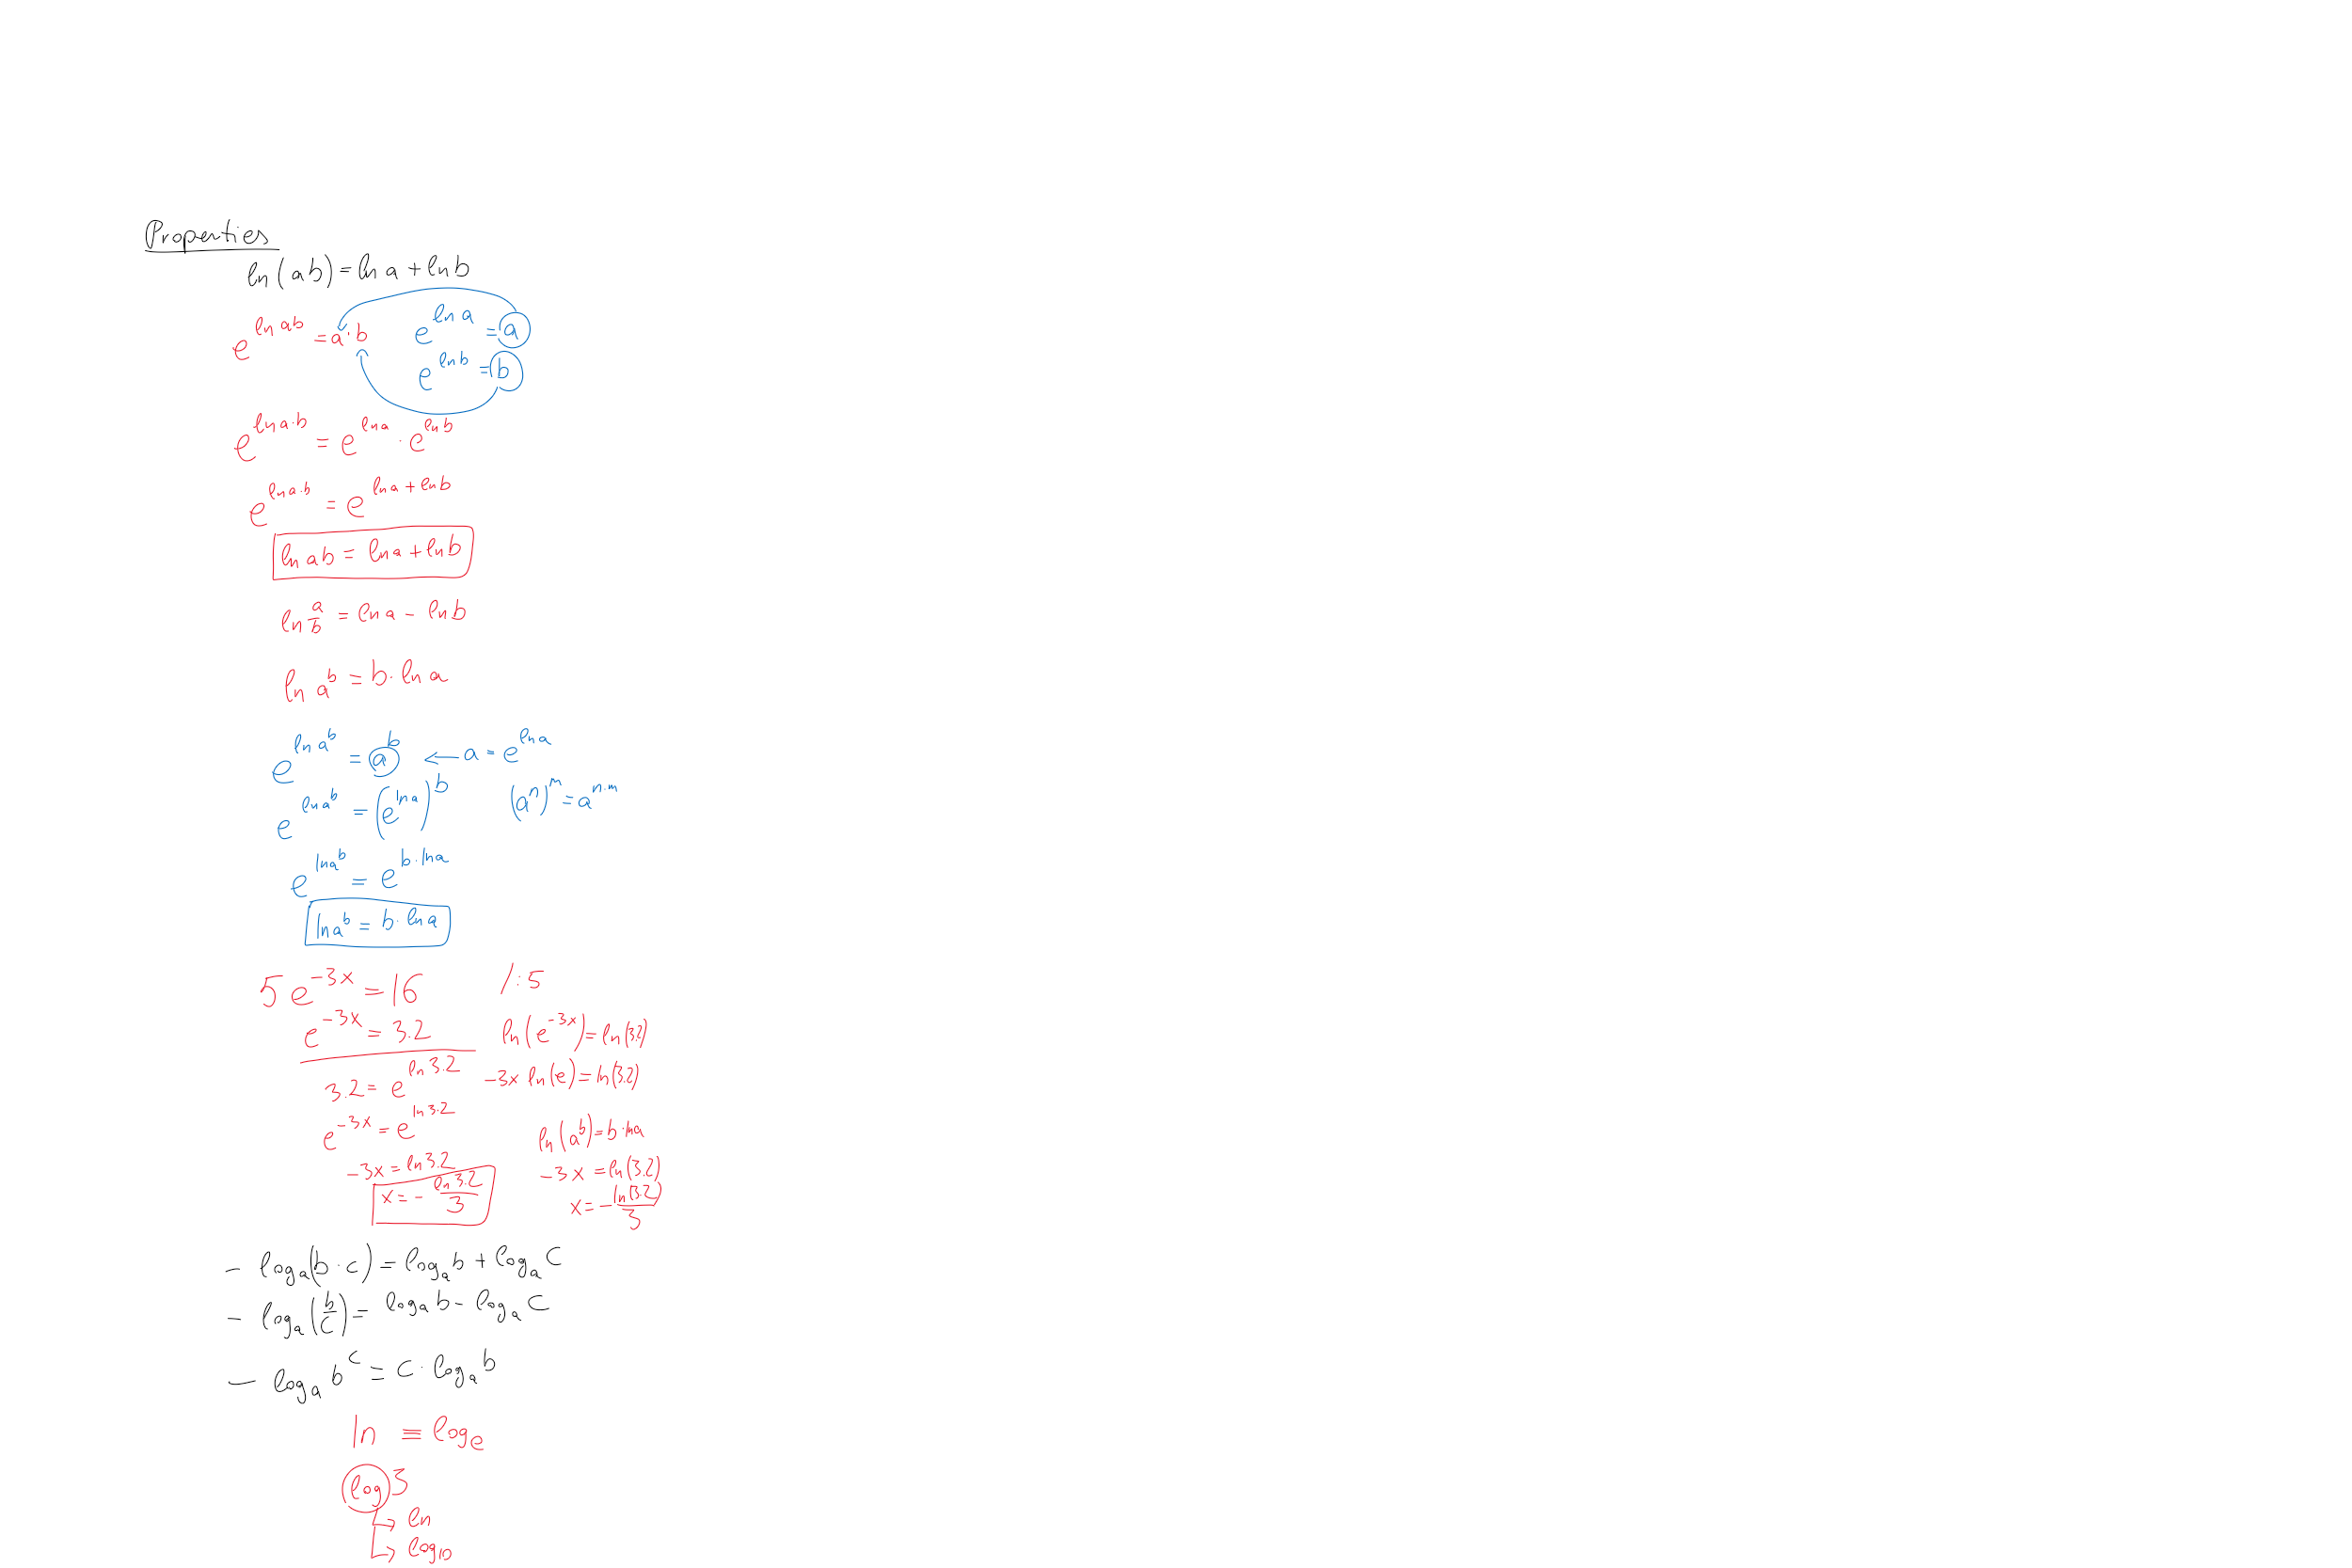 Properties
ln(ab) = ln a + ln b
e^{ln ab} = a · b
e^{ln a} = a
e^{ln b} = b
e^{ln a·b} = e^{ln a} · e^{ln b}
e^{ln a·b} = e^{ln a + ln b}
ln ab = ln a + ln b
ln a/b = ln a - ln b
ln a^b = b · ln a
e^{ln a^b} = a^b ← a = e^{ln a}
e^{ln a^b} = (e^{ln a})^b (a^n)^m = a^{n·m}
e^{ln a^b} = e^{b·ln a}
ln a^b = b · ln a
5 e^{-3x} = 16 /:5
e^{-3x} = 3.2
3.2 = e^{ln 3.2}
e^{-3x} = e^{ln 3.2}
-3x = ln 3.2
x = - ln 3.2 / 3
ln(e^{-3x}) = ln(3.2)
-3x ln(e) = ln(3.2)
ln(a^b) = b · ln a
-3x = ln(3.2)
x = - ln(3.2) / 3
- log_a(b · c) = log_a b + log_a c
- log_a(b/c) = log_a b - log_a c
- log_a b^c = c · log_a b
ln ≡ log_e
log 3
↳ ln
↳ log_10